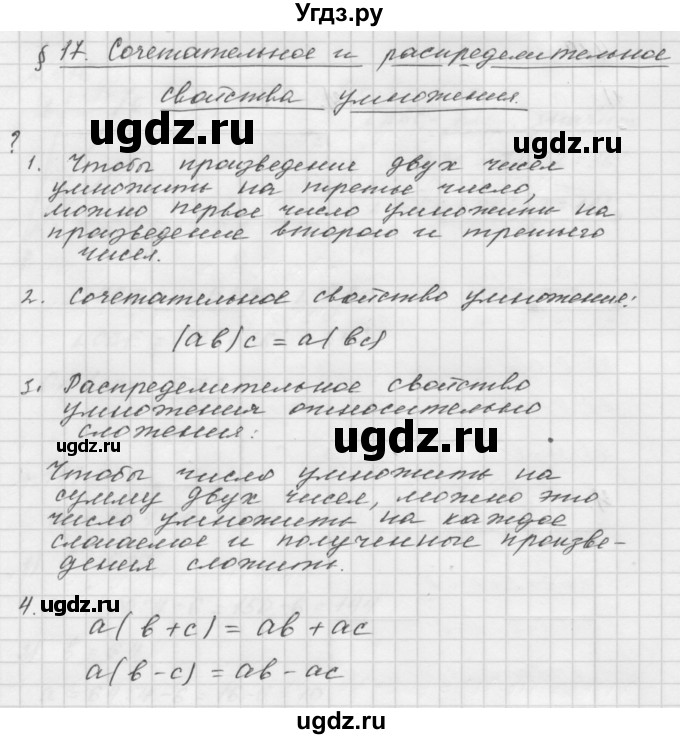 Угдз.ру
§ 17. Сочетательное и распределительное
свойства умножения.
ugdz.ru ugdz.ru
?
1. Чтобы произведение двух чисел
умножить на третье число,
можно первое число умножить на
произведение второго и третьего
чисел.
2. Сочетательное свойство умножение:
(ab)c = a(bc)
3. Распределительное свойство
умножения относительно
сложения:
ugdz.ru ugdz.ru
Чтобы число умножить на
сумму двух чисел, можно это
число умножить на каждое
слагаемое и полученные произве-
дения сложить.
4.
ugdz.ru ugdz.ru
a(b+c) = ab + ac
a(b-c) = ab - ac
ugdz.ru